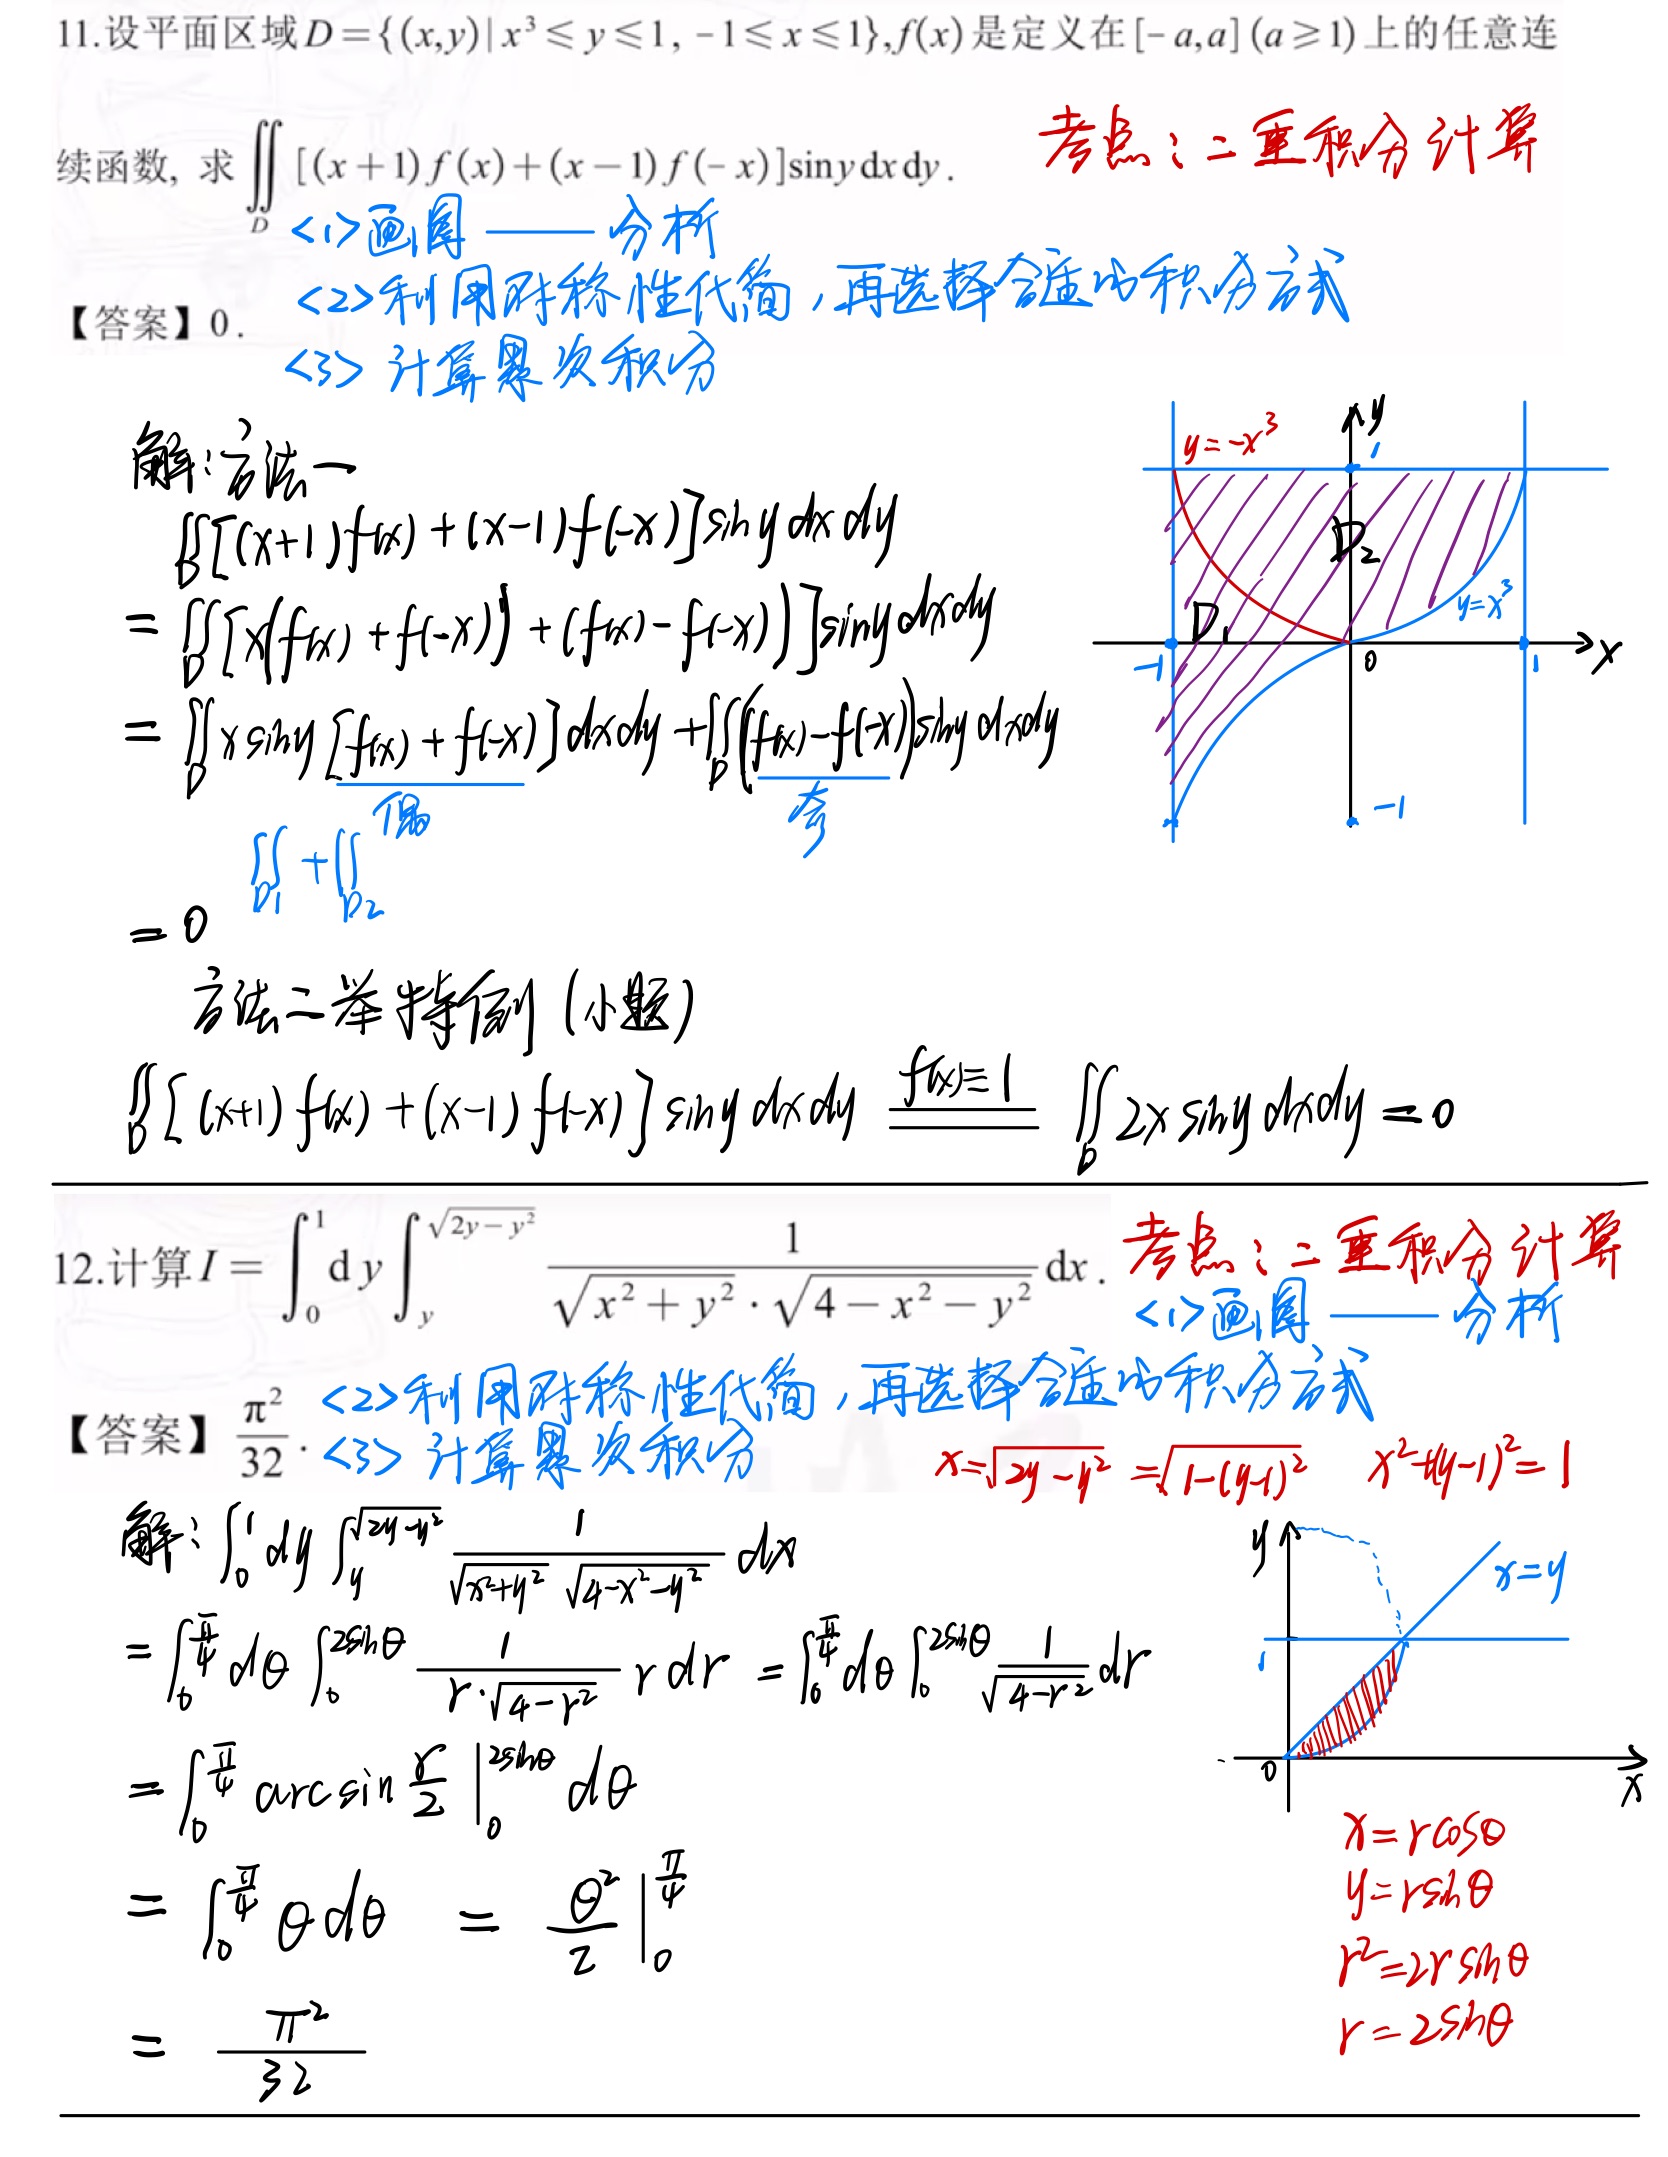 11.设平面区域D={(x,y)|x³≤y≤1, -1≤x≤1},f(x)是定义在[-a,a](a≥1)上的任意连
续函数, 求∬_D [(x+1)f(x)+(x-1)f(-x)]sin y dx dy.
考点:二重积分计算
<1>画图——分析
<2>利用对称性代简,再选择合适的积分方式
【答案】0.
<3>计算累次积分
解:方法一
∬_D[(x+1)f(x)+(x-1)f(-x)]sin y dx dy
=∬_D[x(f(x)+f(-x))+(f(x)-f(-x))]sin y dx dy
=∬_D x sin y[f(x)+f(-x)]dx dy+∬_D(f(x)-f(-x))sin y dx dy
偶 奇
∬_D₁+∬_D₂
=0
y
1
y=-x³
D₂
y=x³
D₁
-1 0 1 x
-1
方法二 举特例(小题)
∬_D[(x+1)f(x)+(x-1)f(-x)]sin y dx dy ==(f(x)≡1)== ∬_D 2x sin y dx dy=0
12.计算I=∫₀¹dy∫_y^{√(2y-y²)} 1/(√(x²+y²)·√(4-x²-y²)) dx.
考点:二重积分计算
<1>画图——分析
<2>利用对称性代简,再选择合适的积分方式
【答案】π²/32.
<3>计算累次积分
x=√(2y-y²)=√(1-(y-1)²) x²+(y-1)²=1
解:∫₀¹dy∫_y^{√(2y-y²)} 1/(√(x²+y²) √(4-x²-y²)) dx
=∫₀^{π/4}dθ∫₀^{2sinθ} 1/(r·√(4-r²)) r dr =∫₀^{π/4}dθ∫₀^{2sinθ} 1/√(4-r²) dr
=∫₀^{π/4} arcsin r/2 |₀^{2sinθ} dθ
=∫₀^{π/4}θdθ = θ²/2 |₀^{π/4}
=π²/32
y
x=y
1
0 x
x=rcosθ
y=rsinθ
r²=2rsinθ
r=2sinθ